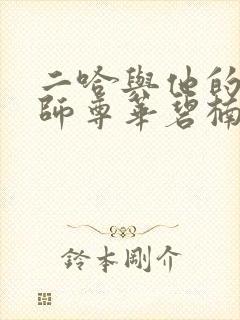 二哈與他的
師尊華碧楠
鈴木剛介